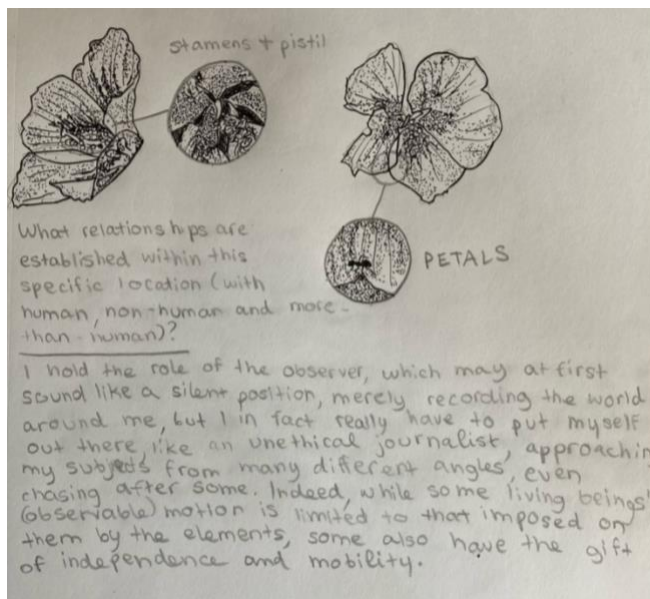 stamens + pistil
PETALS
What relationships are
established within this
specific location (with
human, non-human and more-
than-human)?
I hold the role of the observer, which may at first
sound like a silent position, merely recording the world
around me, but I in fact really have to put myself
out there, like an unethical journalist, approachin
my subjects from many different angles, even
chasing after some. Indeed, while some living beings'
(observable) motion is limited to that imposed on
them by the elements, some also have the gift
of independence and mobility.